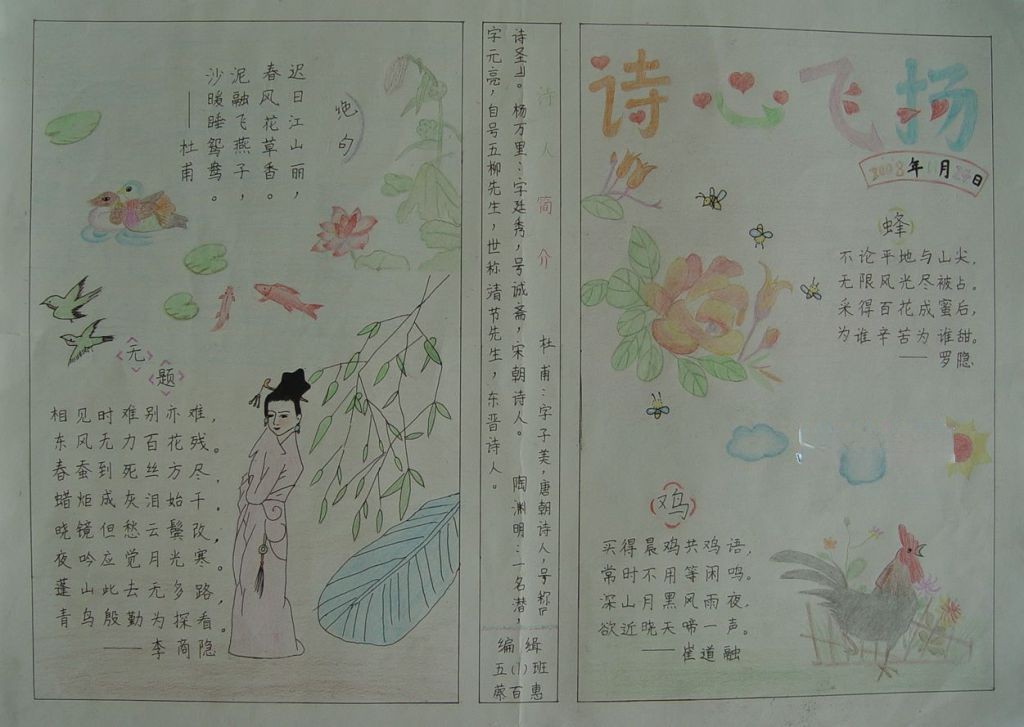 诗心飞扬
2008年11月27日
蜂
不论平地与山尖,
无限风光尽被占。
采得百花成蜜后,
为谁辛苦为谁甜。
——罗隐
鸡
买得晨鸡共鸡语,
常时不用等闲鸣。
深山月黑风雨夜,
欲近晓天啼一声。
——崔道融
诗人简介
杜甫:字子美,唐朝诗人,号称“
诗圣”。杨万里:字廷秀,号诚斋,宋朝诗人。陶渊明:一名潜,
字元亮,自号五柳先生,世称清节先生,东晋诗人。
编辑
五(1)班
蔡百惠
绝句
迟日江山丽,
春风花草香。
泥融飞燕子,
沙暖睡鸳鸯。
——杜甫
无题
相见时难别亦难,
东风无力百花残。
春蚕到死丝方尽,
蜡炬成灰泪始干。
晓镜但愁云鬓改,
夜吟应觉月光寒。
蓬山此去无多路,
青鸟殷勤为探看。
——李商隐